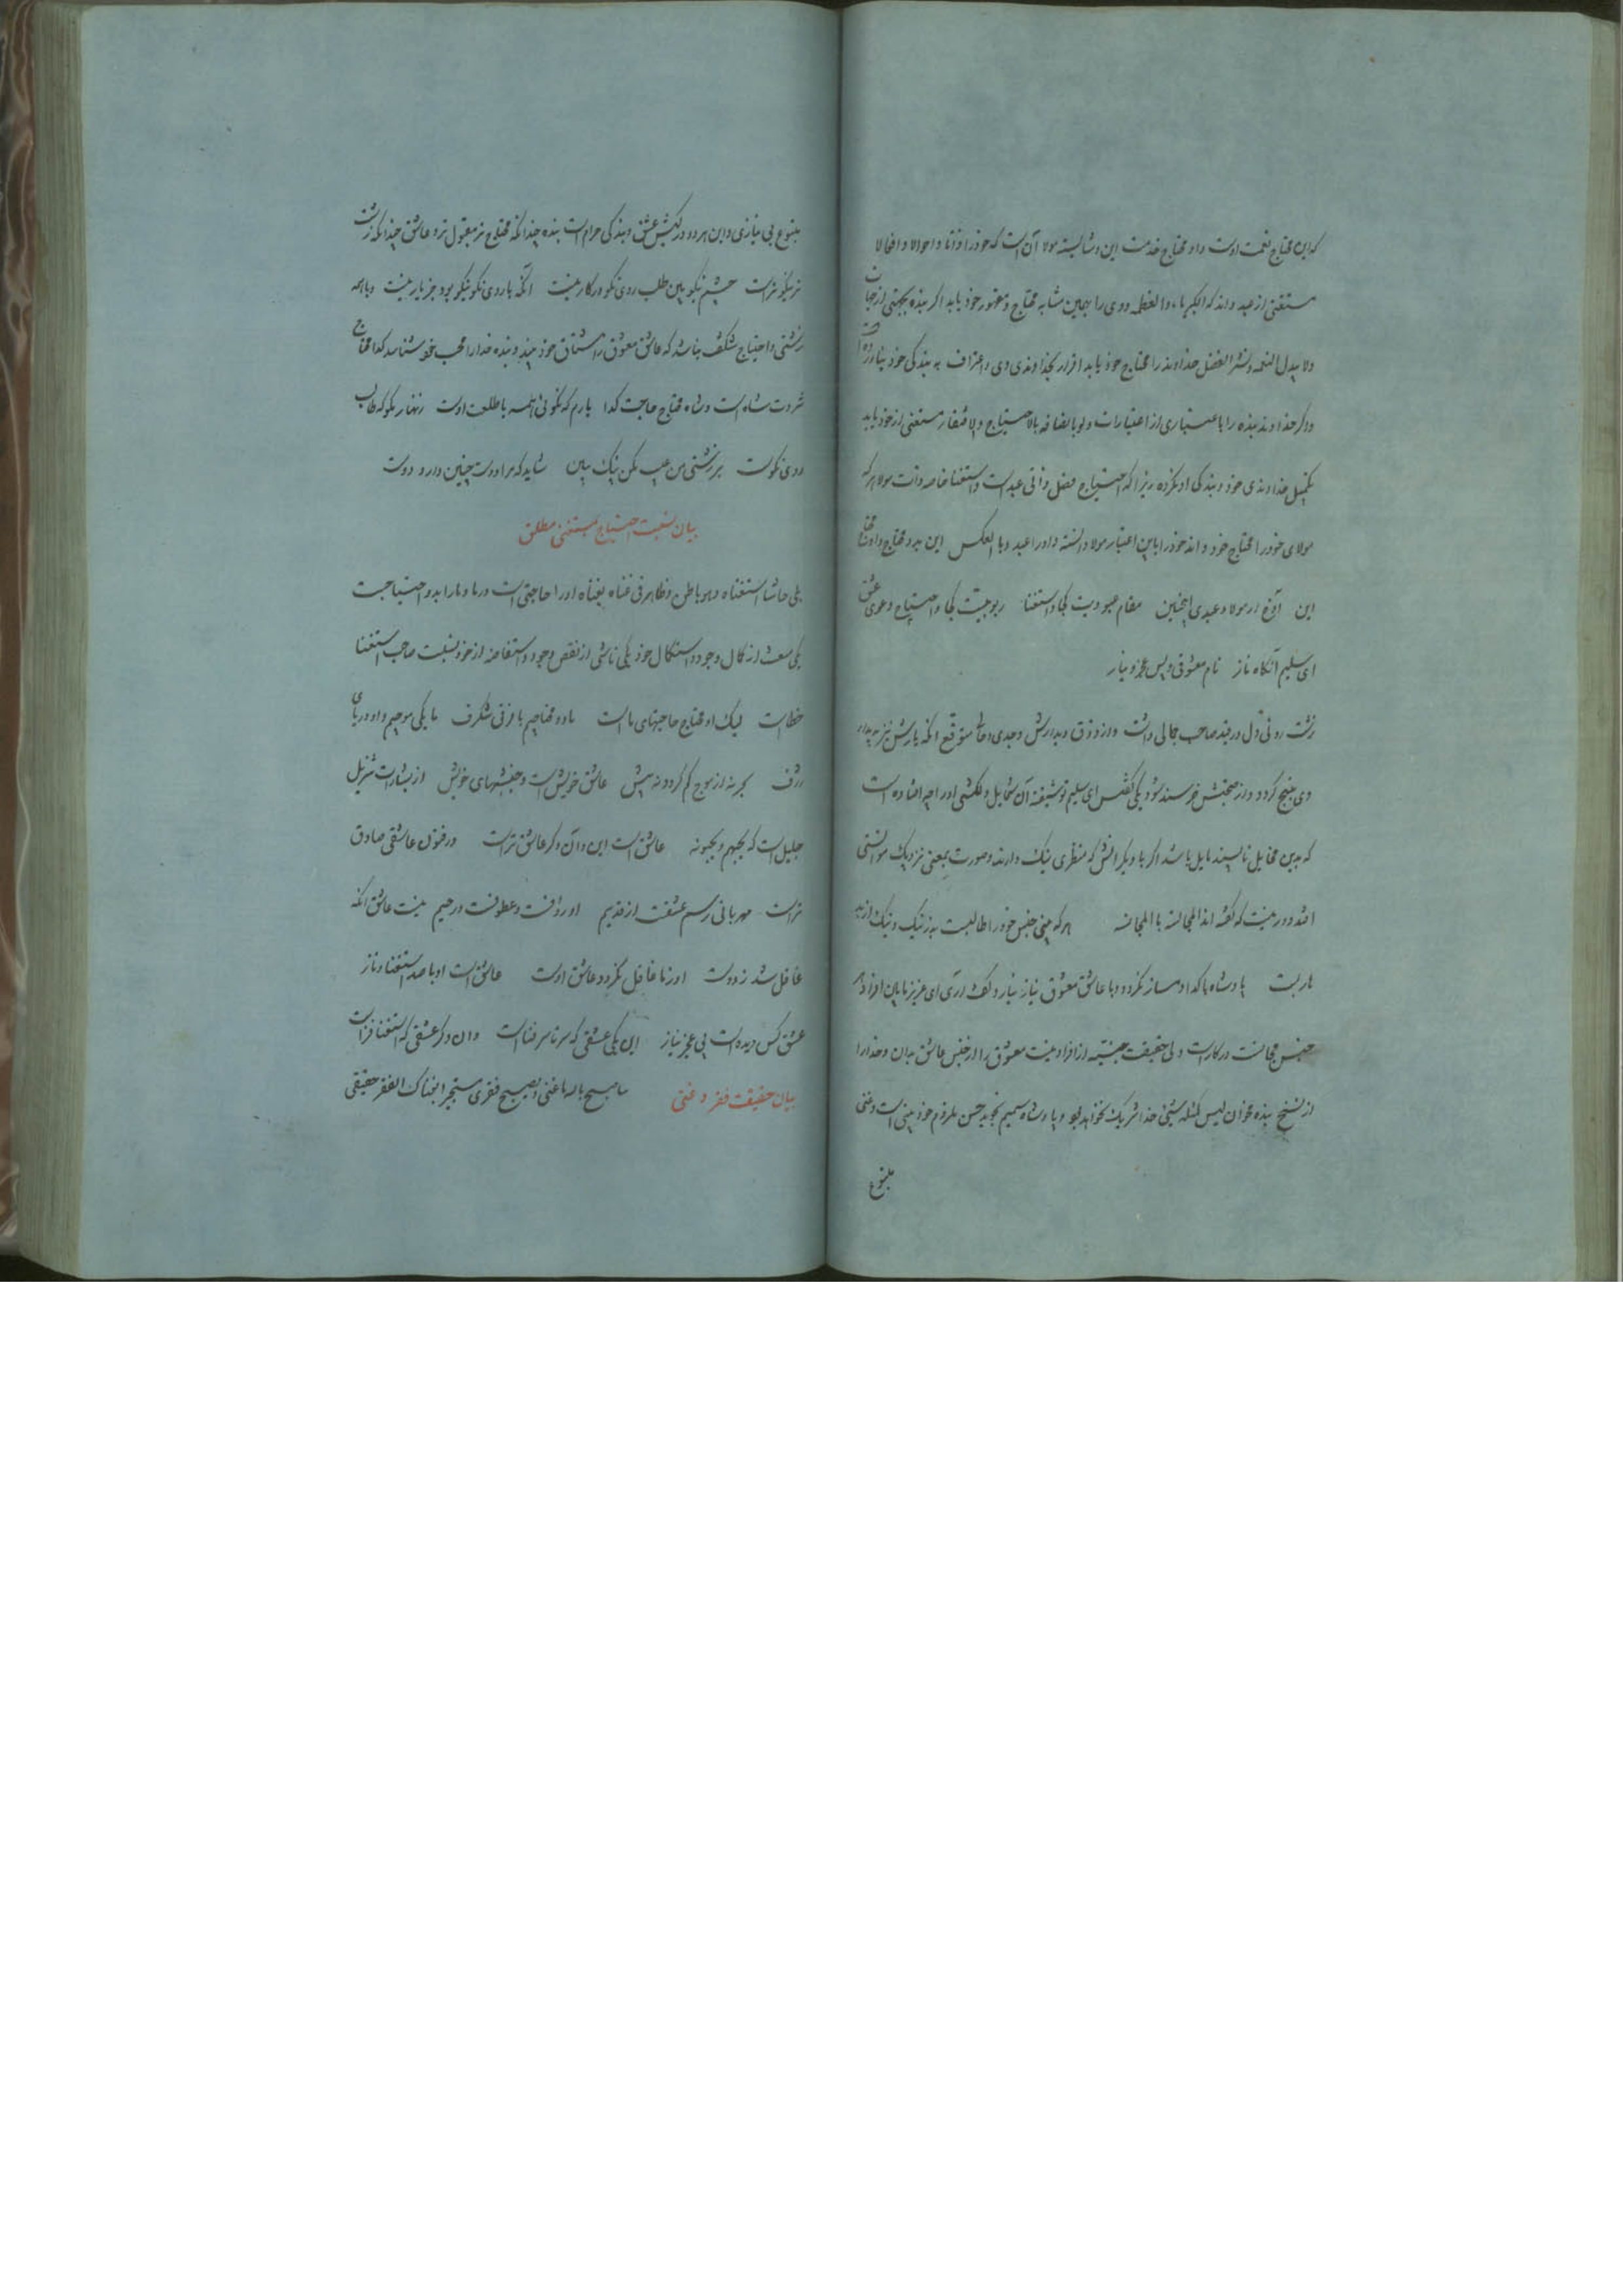 که این محتاج نعمت اوست و او محتاج خدمت این و شایسته مولا آن است که خود را ذاتا و احوالا و افعالا
مستغنی از عبد داند که الکبریاء و العظمه و وی را بهمین مثابه محتاج و مقهور خود یابد اگر بنده بجهتی از جهات
ولا ببدل النعمه و نشر الفضل خداوند را محتاج خود یابد اقرار بخداوندی وی و اعتراف به بندگی خود نیاورده است
و گر خداوند بنده را باعتباری از اعتبارات و لو بالفاقه بالاحتیاج و الافتقار مستغنی از خود یابد
تکمیل خداوندی خود و بندگی او نکرده زیرا که احتیاج فصل ذاتی عبد است و استغنا خاصه ذات مولا هر که
مولای خود را محتاج خود داند خود را باین اعتبار مولا دانسته و او را عبد و بالعکس این بدو محتاج و او محتاج
این آوخ از مولا و عبدی اینچنین مقام عبودیت کجا و استغنا ربوبیت کجا و احتیاج دعوی عشق
ای سلیم آنگاه ناز نام معشوقی و پس عجز و نیاز
زشت روئی دل در بند صاحب جمالی داشت و از ذوق دیدارش وجدی و حالی متوقع آنکه یارش نیز به دیدار
وی مبتهج گردد و از صحبتش خرسند شود یکی گفتش ای سلیم تو شیفته آن شمایل دلکشی او را چه افتاده است
که بدین مخایل ناپسند مایل باشد اگر با دیگرانش که منظری نیک دارند و صورت بمعنی نزدیک موانستی
افتد دور نیست که گفته‌اند المجالسة بالمجانسة هر که بینی جنس خود را طالبست بد ز نیک و نیک از بد
هاربست پادشاه با گدا دمساز نگردد و با عاشق معشوق نیاز نیارد گفت آری ای عزیز ما بین افراد هر
جنس مجانست در کار است ولی حقیقت جنسیه از افراد نیست معشوق را از جنس عاشق مدان و خدا را
از نسخ بنده مخوان لیس کمثله شیئی خدا شریک نخواهد لیو و پادشاه سهیم نجوید حسن ملزوم خودبینی است و غنی
متبوع
متبوع بی نیازی و این هر دو در کیش عشق و بندگی حرام است بنده چندانکه محتاج تر مقبول تر و عاشق چندانکه زشت
تر نیکوتر است چشم نیکو بین طلب روی نکو در کار نیست آنکه با روی نکو نیکو بود جز یار نیست و با همه
زشتی و احتیاج شگفت نباشد که عاشق معشوق را مشتاق خود بیند و بنده خدا را محب خود شناسد گدا محتاج
ثروت شاه است و شاه محتاج حاجت گدا یارم که نکوئی همه با طلعت اوست زنهار مگو که طالب
روی نکوست بر زشتی من عیب مکن نیک ببین شاید که مرا دوست چنین دارد دوست
بیان نسبت احتیاج بمستغنی مطلق
بلی حاشا استغناه و هو باطن و ظاهر فی غناه بغناه او را حاجتی است در ما و ما را بدو احتیاجست
یکی منبعث از کمال وجود و استکمال خود یکی ناشی از نقص وجود و استفاضه از خود نسبت صاحب استغنا
خطاست لیک او محتاج حاجتهای ماست ما و او محتاجیم با فرقی شگرف ما یکی موجیم و او دریای
ژرف بحر نه از موج کم گردد نه بیش عاشق خویش است و جنبشهای خویش از بشارات تنزیل
جلیل است که یحبهم و یحبونه عاشق است این و آن دگر عاشق‌تر است در فنون عاشقی صادق
تر است مهربانی رسم عشقت از قدیم او رؤافت و عطوفت و رحیم نیست عاشق آنکه
غافل شد ز دوست او ز ما غافل نگردد عاشق اوست عاشق است او با صد استغنا و ناز
عشق کس دیده است بی عجز و نیاز این یکی عشقی که سرتاسر فناست و ان دگر عشقی که استغنا فزاست
بیان حقیقت فقر و غنی سامیح باله ما غنی و یصیح فقری مستجیرا بغناک الفقر حقیقی